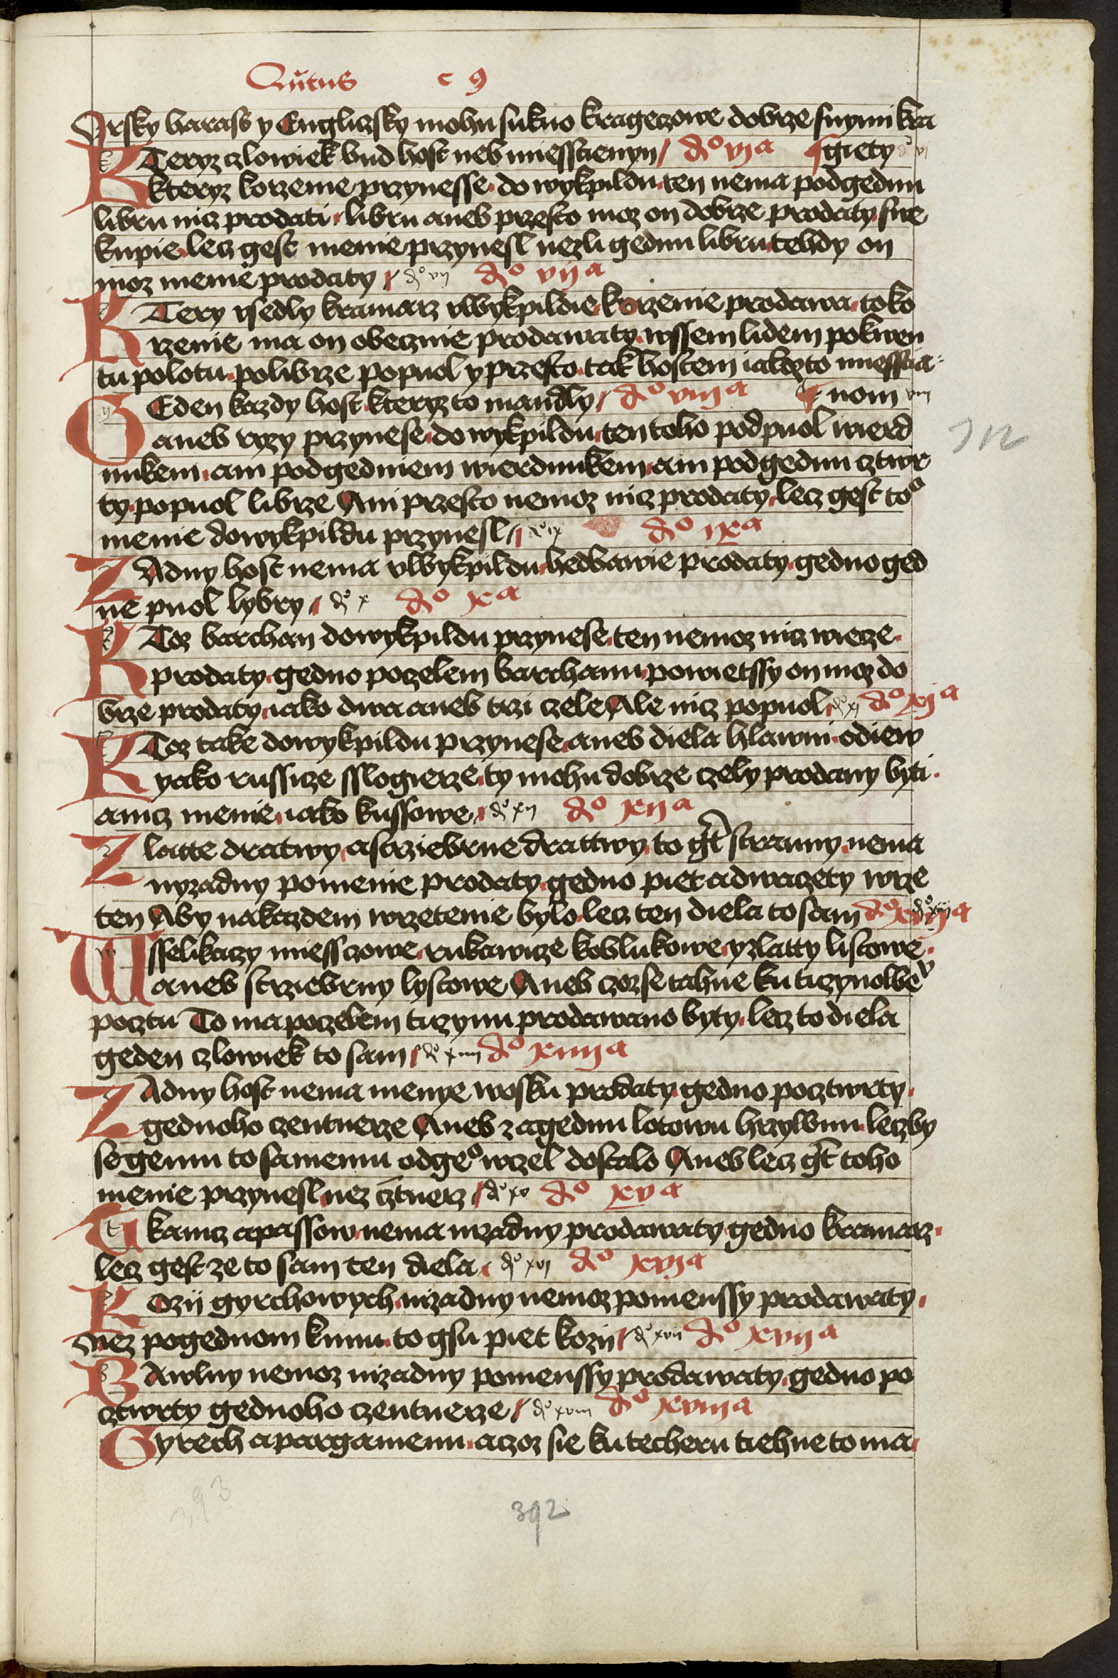 Quitus c 9
Orsky harass y Engliczsky mohu sukno krageczowe dobrze snymi kra
KTeryz czlowiek bud host neb miesstienyn do vi a giety
kteryz korzenie przynesse do wykpildu ten nema podgednu
libru nicz prodati libru aneb przesto moz on dobrze prodaty swe
kupie lecz gest menie przynesl nezli gednu libru tehdy on
moz menie prodaty do vii do vii a
KTery vsedly kramarz vWykpildie korzenie prodawa to ko
rzenie ma on obecznie prodawaty wssem lidem pokwen
tu polotu polibrze popuol y przesto tak hostem iakozto miesstia
GEden kazdy host kteryz to mandly do viii a nom viii
aneb ryzy przynese do wykpildu ten toho podpuol wierd
nukem ani podgedniem wierdunkem ani podgednu cztwr
ty popuol librze Ani przesto nemoz nicz prodaty lecz gest too
menie dowykpildu przynesl do ix do ix a
ZAdny host nema vWykpildu hedbawie prodaty gedno ged
ne puol lybry do x do x a
KToz barchan dowykpildu przynese ten nemoz nicz wiecze
prodaty gedno poczelem barchanu powietssy on moz do
brze prodaty iako dwa aneb trzi czele Ale nicz popuol do xi do xi a
KToz take dowykpildu przynese aneb diela hlawni odiew
yako russicze sslogierze ty mohu dobrze czely prodany byti
anicz menie iako kussowe do xii do xii a
Zlatte dratwy a strziebrne drattwy to gt stranny nema
nyzadny pomenie prodaty gedno piet adwaczety wrze
ten Aby nakazdem wrzetenie bylo lecz ten diela to sam do xiii a
Wsselikaczy miessczowe rukawicze koblukowe yzlatty listowe
aneb strziebrny lystowe Aneb czozse tahne ku trzynolbe
pocztu To ma poczelem trzynu prodawano byty lecz to diela
geden czlowiek to sam do xiiii do xiiii a
ZAdny host nema menye wosku prodaty gedno pocztwrty
gednoho czentnerze Aneb zagednu lotowu hrzylwnu leczby
se gemu to samemu odgeo wzel dostalo Aneb lecz gt toho
menie przynesl nez cztnerz do xv do xv a
Tkanicz apassow nema nizadny prodawaty gedno kramarz
lecz gest ze to sam ten diela do xvi do xvi a
KOzii gyrchowych nizadny nemoz pomenssy prodawaty
nez pogednom kunu to gsu piet kozii do xvii do xvii a
BAwlny nemoz nizadny pomenssy prodawaty gedno po
cztwrty gednoho czentnerze do xviii do xviii a
Gyrech apargamenu aczoz sie ku techeru tiehne to ma
392